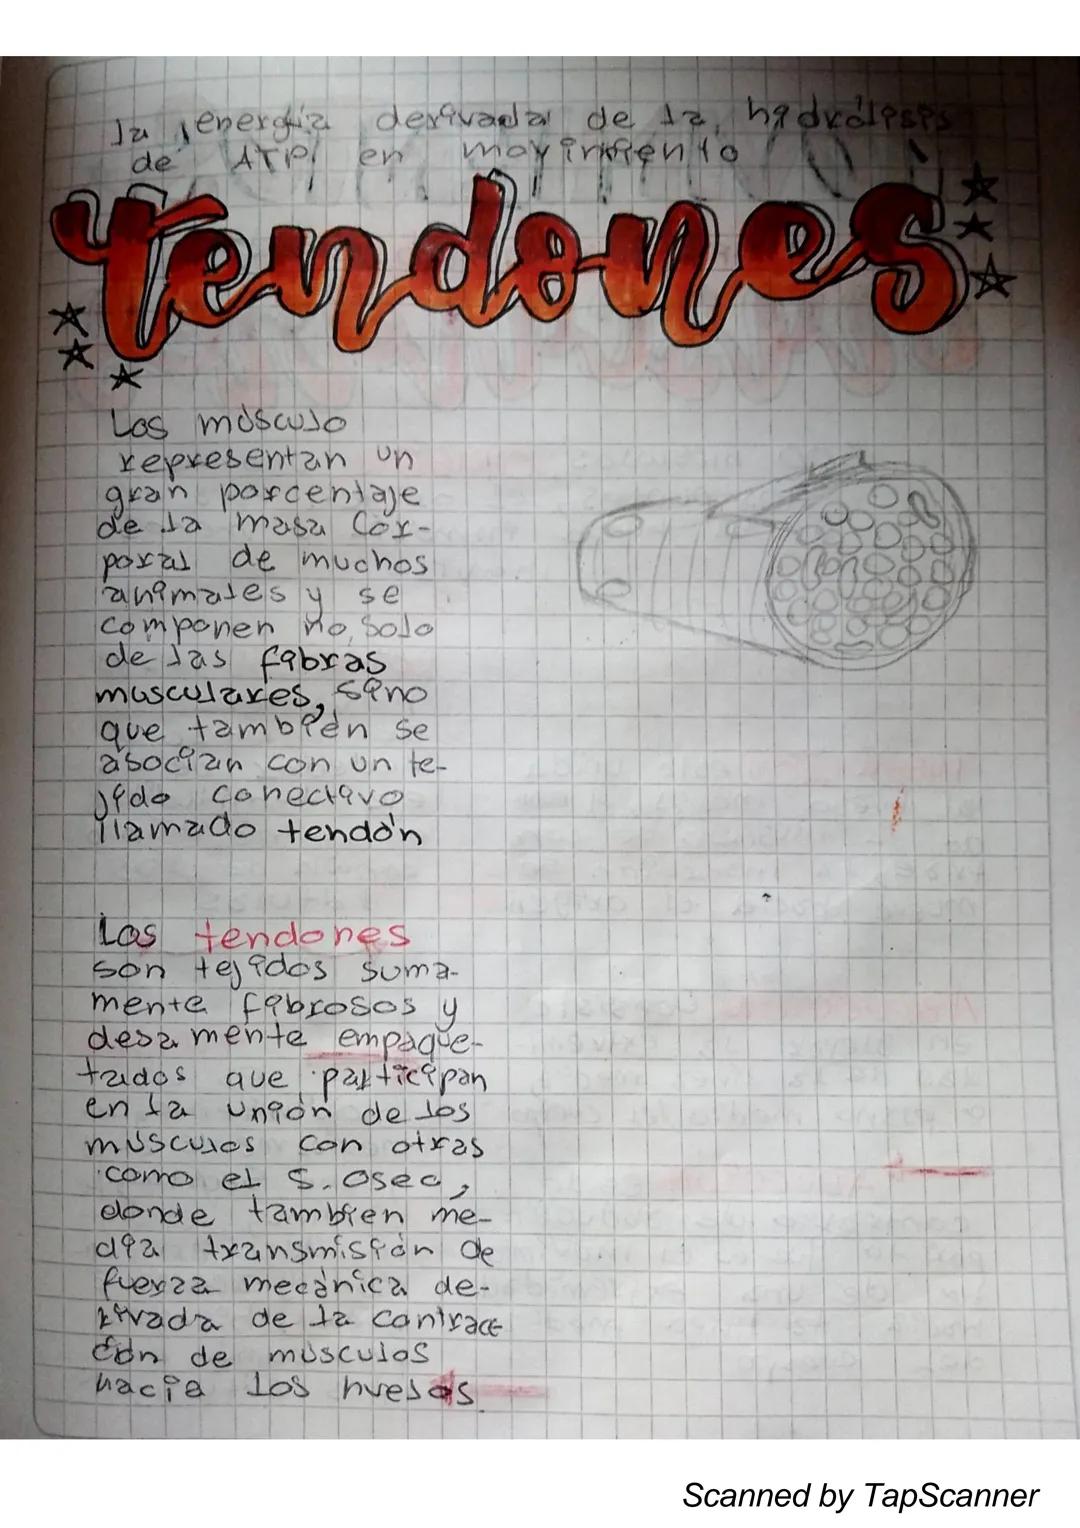 la energía derivada de la hidrólisis
de ATP en movimiento
tendones
Los músculo
representan un
gran porcentaje
de la masa Cor-
poral de muchos
animales y se
componen no, solo
de las fibras
musculares, sino
que también se
asocian con un te-
jido conectivo
llamado tendón
Los tendones
son tejidos suma-
mente fibrosos y
desamente empaque-
tados que participan
en la unión de los
músculos con otras
como el S. Oseo,
donde tambien me-
dia transmisión de
fuerza mecánica de-
rivada de la contracc
ión de músculos
hacia los huesos
Scanned by TapScanner